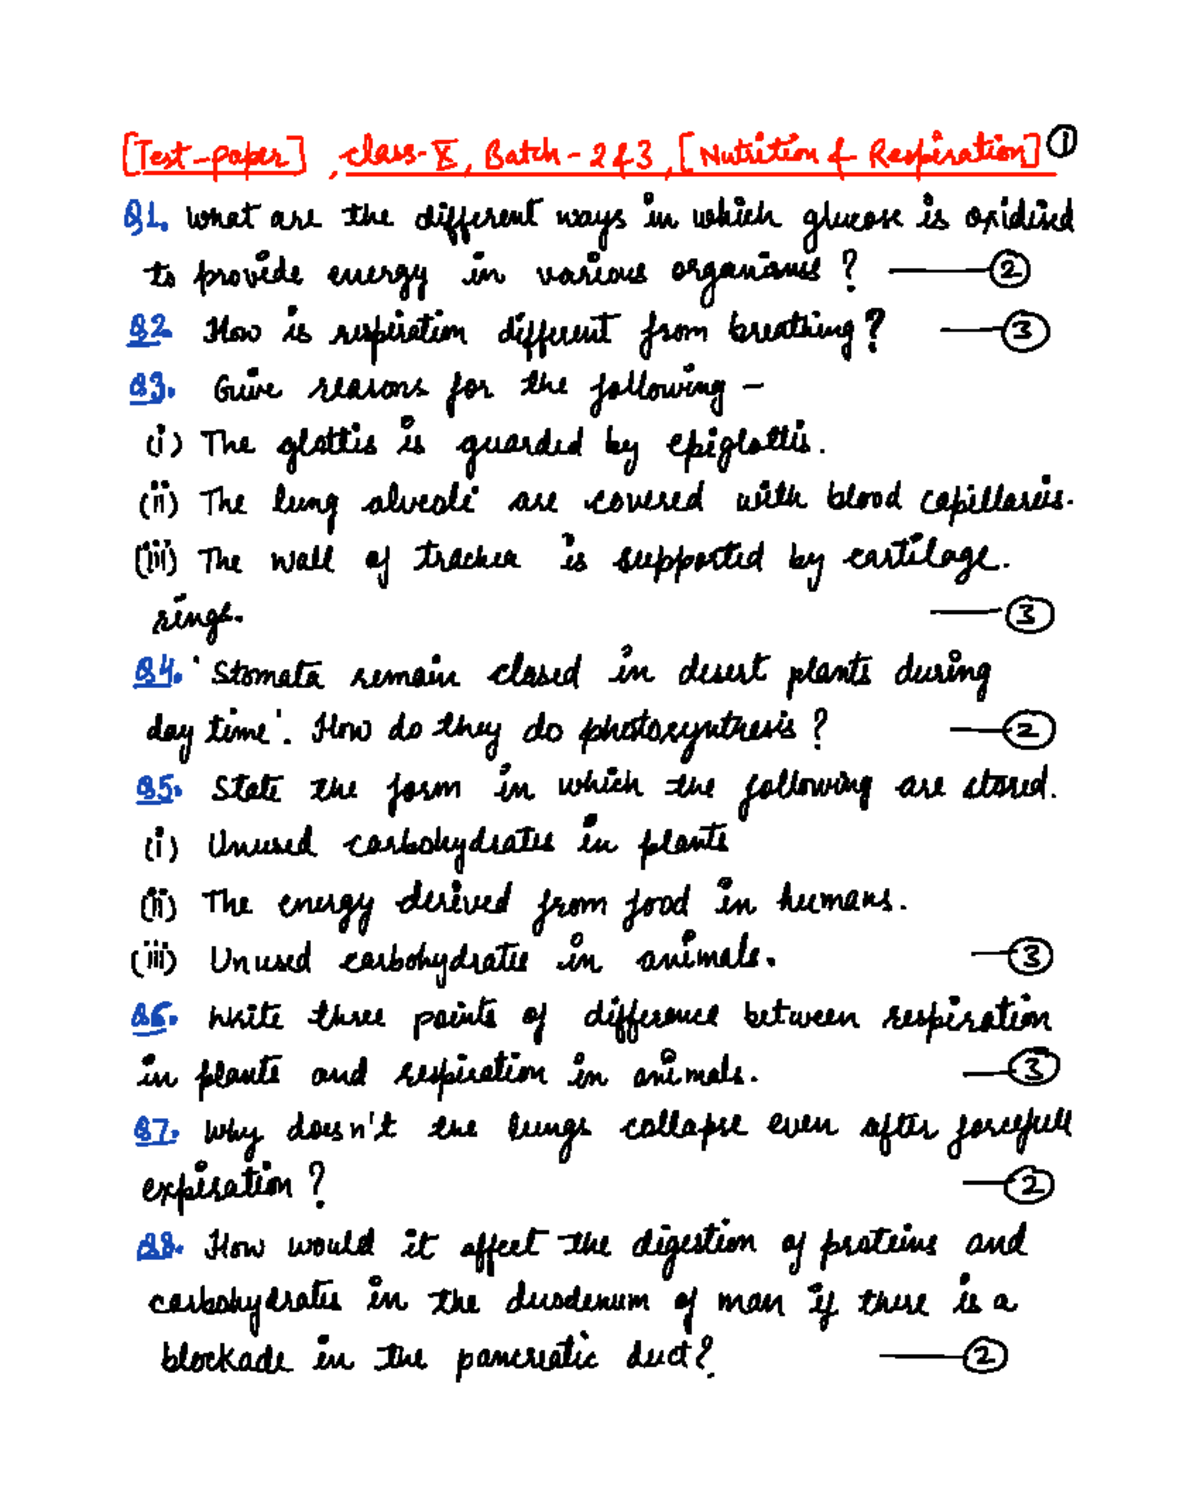 [Test-paper], class-X, Batch-2&3, [Nutrition & Respiration] 1
Q1. What are the different ways in which glucose is oxidised
to provide energy in various organisms? — 2
Q2 How is respiration different from breathing? — 3
Q3. Give reasons for the following -
(i) The glottis is guarded by epiglottis.
(ii) The lung alveoli are covered with blood capillaries.
(iii) The wall of trachea is supported by cartilage.
rings. — 3
Q4. 'Stomata remain closed in desert plants during
day time'. How do they do photosynthesis? — 2
Q5. State the form in which the following are stored.
(i) Unused carbohydrates in plants
(ii) The energy derived from food in humans.
(iii) Unused carbohydrates in animals. — 3
Q6. Write three points of difference between respiration
in plants and respiration in animals. — 3
Q7. Why doesn't the lungs collapse even after forcefull
expiration? — 2
Q8. How would it affect the digestion of proteins and
carbohydrates in the duodenum of man if there is a
blockade in the pancreatic duct? — 2